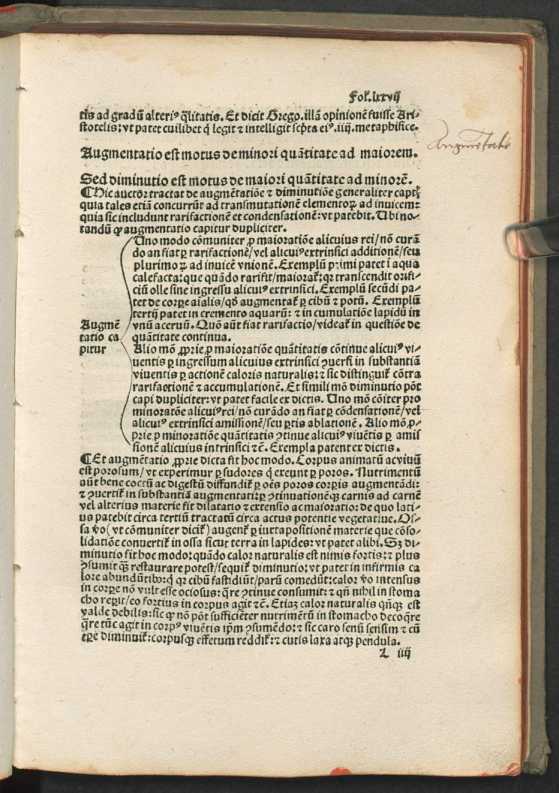 Fol. lxvij
tis ad gradū alteriꝰ q̄litatis. Et dicit Grego. illā opinionē fuisse Ari-
stotelis: vt patet cuilibet q̇ legit ⁊ intelligit scp̄ta eiꝰ .iiij. metaphisice.
Augmentatio est motus de minori quātitate ad maiorem.
Sed diminutio est motus de maiori quātitate ad minorē.
¶ Hic auctor tractat de augmētatiōe ⁊ diminutiōe generaliter capt̄:
quia tales etiā concurrūt ad transmutationē elementoꝝ ad inuicem:
quia sic includunt rarifactionē et condensationē: vt patebit. Ubi no-
tandū ꝙ augmentatio capitur dupliciter.
Uno modo cōmuniter ꝓ maioratiōe alicuius rei/nō curā
do an fiat ꝑ rarifactionē/vel alicuiꝰ extrinsici additionē/seu
plurimoꝝ ad inuicē vnionē. Exemplū primi patet ī aqua
calefacta: que quādo rarifit/maioraꝉ: qꝛ transcendit orifi-
ciū olle sine ingressu alicuiꝰ extrinsici. Exemplū secūdi pa-
tet de corꝑe aīalis/qd̄ augmentaꝉ ꝑ cibū ⁊ potū. Exemplū
tertij patet in cremento aquarū: ⁊ in cumulatiōe lapidū in
vnū aceruū. Quō aūt fiat rarifactio/videaꝉ in questiōe de
quātitate continua.
Augmē
tatio ca
pitur
Alio mō ꝓprie ꝓ maioratiōe quātitatis cōtinue alicuiꝰ vi-
uentis ꝑ ingressum alicuius extrinsici ꝯuersi in substantiā
viuentis ꝑ actionē caloris naturalis: ⁊ sic distinguiꝉ cōtra
rarifactionē ⁊ accumulationē. Et simili mō diminutio pōt
capi dupliciter: vt patet facile ex dictis. Uno mō cōiter pro
minoratōe alicuiꝰ rei/nō curādo an fiat ꝑ cōdensationē/vel
alicuiꝰ extrinsici amissionē/seu ꝑtis ablationē. Alio mō ꝓ-
prie ꝓ minoratiōe quātitatis ꝯtinue alicuiꝰ viuētis ꝑ amis
sionē alicuius intrinsici ⁊c̄. Exempla patent ex dictis.
¶ Et augmētatio ꝓprie dicta fit hoc modo. Corpus animatū ac viuū
est porosum/vt experimur ꝑ sudores q̇ exeunt ꝑ poros. Nutrimentū
aūt bene coctū ac digestū diffundiꝉ ꝑ oēs poros corꝑis augmentādi:
⁊ ꝯuertiꝉ in substantiā augmentati: ꝑ ꝯtinuationēqꝫ carnis ad carnē
vel alterius materie fit dilatatio ⁊ extensio ac maioratio: de quo lati-
us patebit circa tertiū tractatū circa actus potentie vegetatiue. Os-
sa v̊o (vt cōmuniter diciꝉ) augenꝉ ꝑ iuxta positionē materie que cōso-
lidatiōe conuertiꝉ in ossa sicut terra in lapides: vt patet alibi. Sꝫ di-
minutio fit hoc modo: quādo calor naturalis est nimis fortis: ⁊ plus
ꝯsumit qꝫ restaurare potest/sequiꝉ diminutio: vt patet in infirmis ca
lore abundātibꝰ: q̇ qꝛ cibū fastidiūt/parū comedūt: calor v̊o intensus
in corꝑe nō vult esse ociosus: q̄re ꝯtinue consumit: ⁊ qn̄ nihil in stoma
cho reꝑit/eo fortius in corpus agit ⁊c̄. Etiā calor naturalis qn̄qꝫ est
valde debilis: sic ꝙ nō pōt sufficiēter nutrimētū in stomacho decoq̄re
q̄re tūc agit in corpꝰ viuētis ip̄m ꝯsumēdo: ⁊ sic caro senū sensim ⁊ cū
tꝑe diminuiꝉ: corpusqꝫ effetum reddiꝉ: ⁊ cutis laxa atqꝫ pendula.
iiij